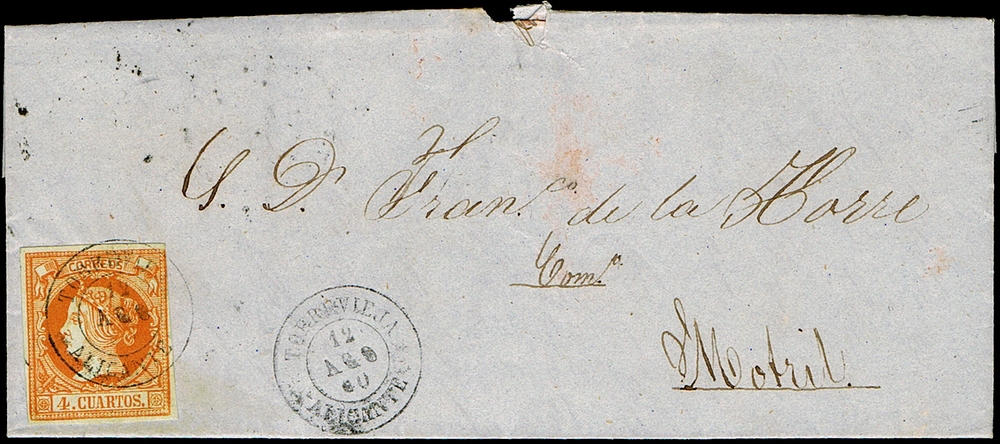 S. D.ⁿ Fran.ᶜᵒ de la Horre
Com.ᵒ
Motril.
CORREOS
4. CUARTOS.
TORREVIEJA
12
AGO
60
ALICANTE
AGO
ALICANTE